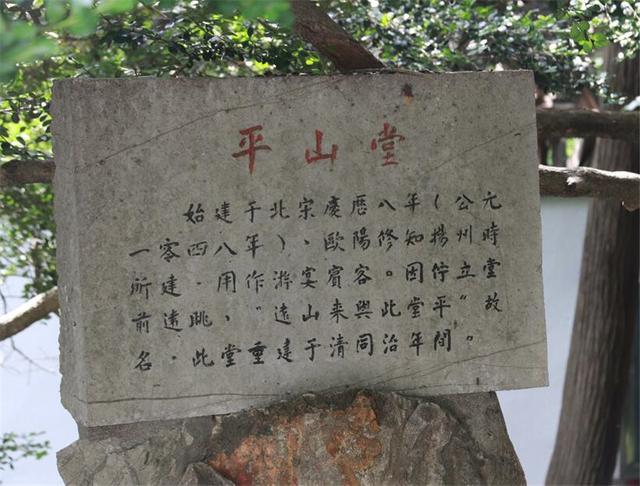 平山堂
始建于北宋慶厯八年(公元
一零四八年)、歐陽修知揚州時
所建.用作游宴賓客。因佇立堂
前遠眺,“遠山来與此堂平”。故
名.此堂重建于清同治年間